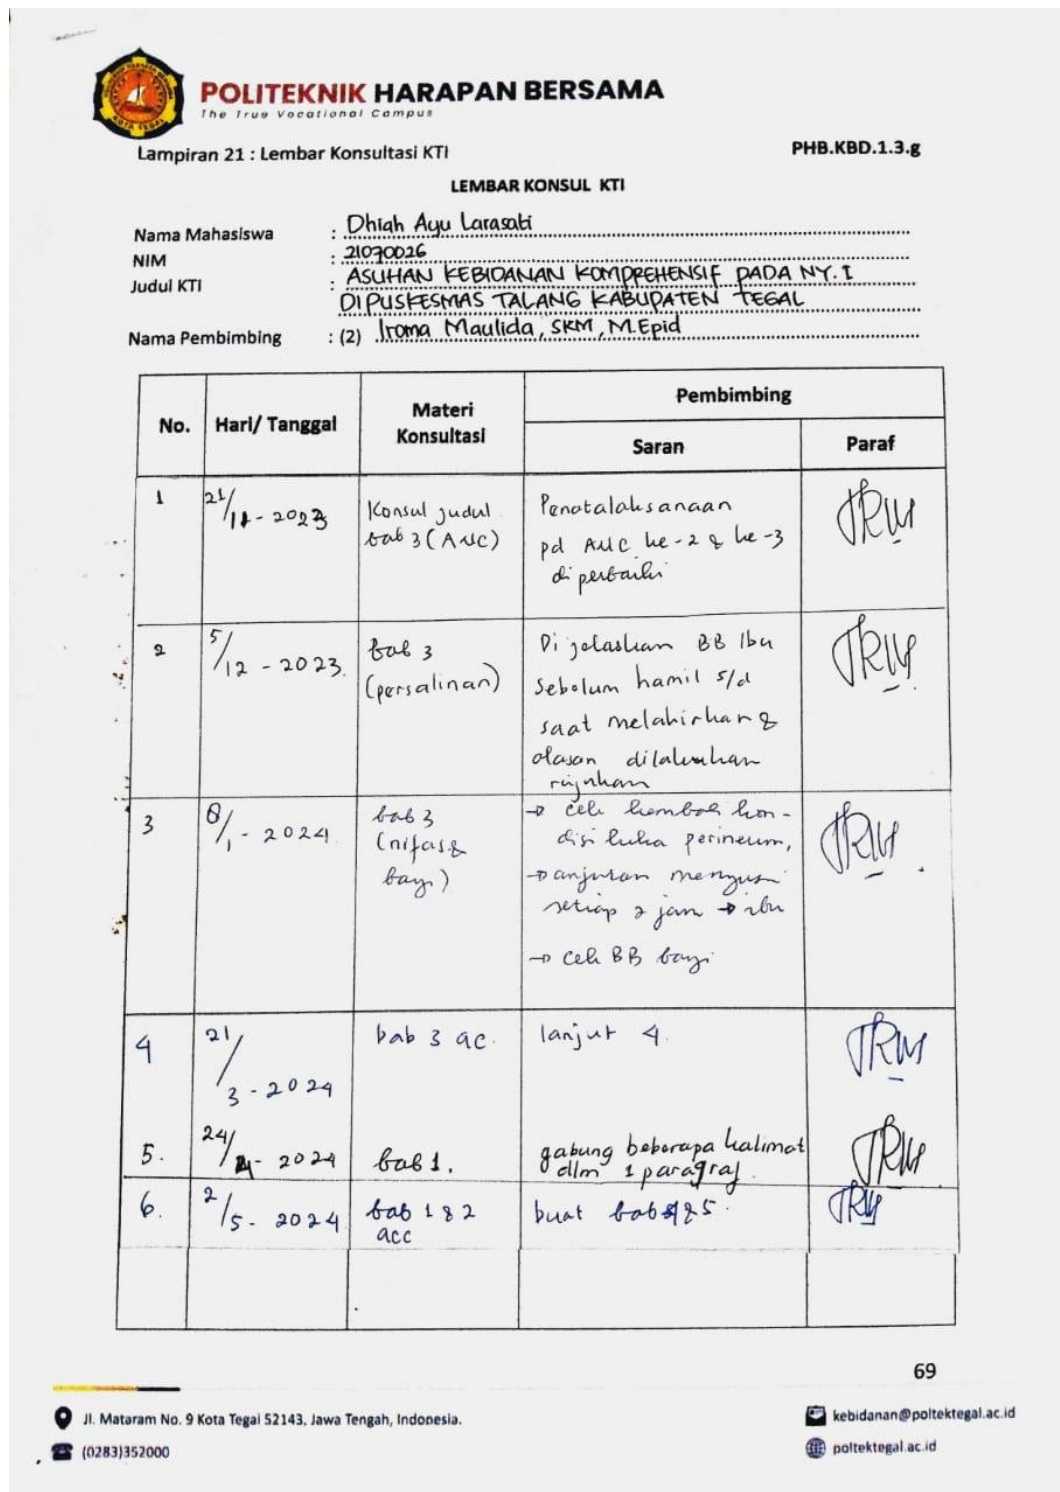 POLITEKNIK HARAPAN BERSAMA
The True Vocational Campus
Lampiran 21 : Lembar Konsultasi KTI
PHB.KBD.1.3.g
LEMBAR KONSUL KTI
Nama Mahasiswa : Dhiah Ayu Larasati
NIM : 21070026
Judul KTI : ASUHAN KEBIDANAN KOMPREHENSIF PADA NY. I
DI PUSKESMAS TALANG KABUPATEN TEGAL
Nama Pembimbing : (2) Iroma Maulida, SKM, M.Epid
No. Hari/ Tanggal Materi Konsultasi Pembimbing
Saran Paraf
1 21/11 - 2023 Konsul judul Penatalaksanaan
bab 3 (ANC) pd ANC ke-2 & ke-3
diperbaiki
2 5/12 - 2023. bab 3 Dijelaskan BB Ibu
(persalinan) sebelum hamil s/d
saat melahirkan &
alasan dilakukan
rujukan
3 8/1 - 2024. bab 3 → cek kembali kon-
(nifas & disi luka perineum,
bayi) → anjuran menyusui
setiap 2 jam → ibu
→ cek BB bayi
4 21/3 - 2024 bab 3 ac. lanjut 4.
5. 24/4 - 2024 bab 1. gabung beberapa kalimat
dlm 1 paragraf.
6. 2/5 - 2024 bab 1 & 2 buat bab 4 & 5.
acc
69
Jl. Mataram No. 9 Kota Tegal 52143, Jawa Tengah, Indonesia.
kebidanan@poltektegal.ac.id
(0283)352000
poltektegal.ac.id